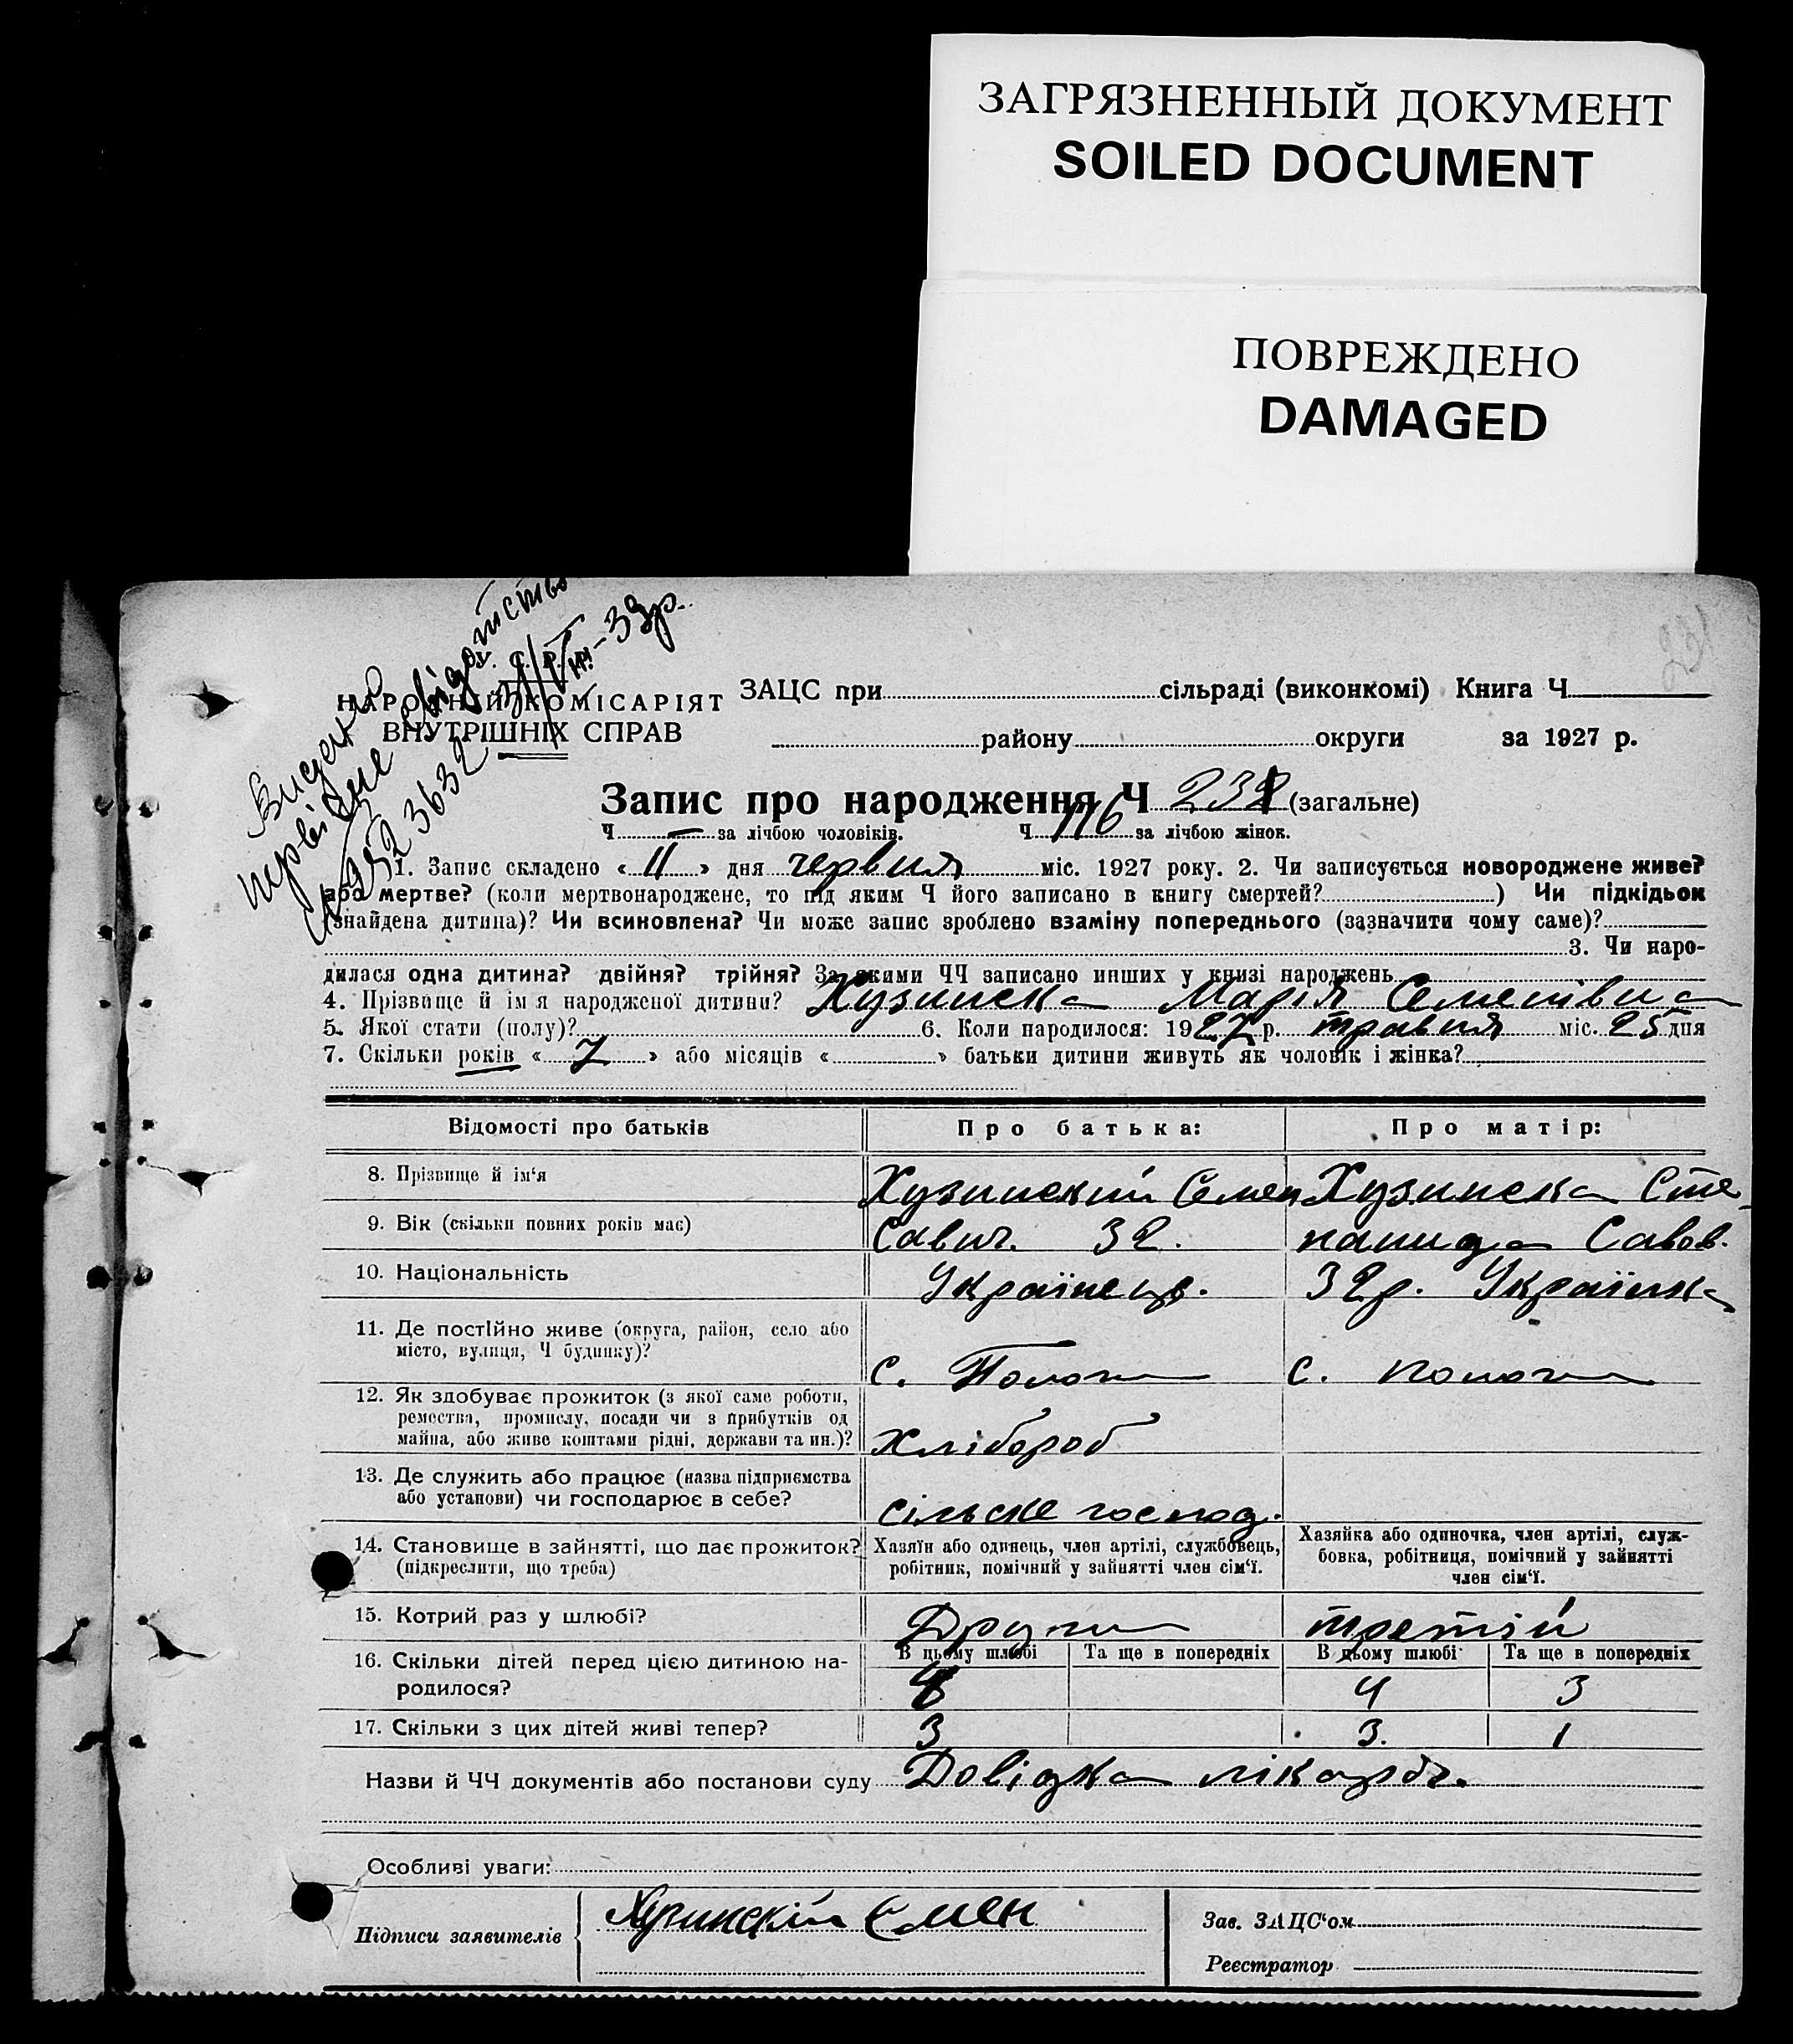 ЗАГРЯЗНЕННЫЙ ДОКУМЕНТ
SOILED DOCUMENT
ПОВРЕЖДЕНО
DAMAGED
Видано
первісне свідоцтво
31/VIII-39р.
№ 3523632
У. С. Р. Р.
НАРОДНІЙ КОМІСАРІЯТ
ВНУТРІШНІХ СПРАВ
ЗАЦС при сільраді (виконкомі) Книга Ч.
району округи за 1927 р.
Запис про народження Ч 232 (загальне)
Ч. — за лічбою чоловіків. Ч. 116 за лічбою жінок.
1. Запис складено « 11 » дня червня міс. 1927 року. 2. Чи записується новороджене живе?
або мертве? (коли мертвонароджене, то під яким Ч його записано в книгу смертей? ) Чи підкідьок
(знайдена дитина)? Чи всиновлена? Чи може запис зроблено взаміну попереднього (зазначити чому саме)?
3. Чи наро-
дилася одна дитина? двійня? трійня? За якими ЧЧ записано инших у книзі народжень
4. Прізвище й ім'я народженої дитини? Хузинска Марія Семенівна
5. Якої стати (полу)? 6. Коли народилося: 1927 р. травня міс. 25 дня
7. Скільки років « 7 » або місяців « » батьки дитини живуть як чоловік і жінка?
Відомості про батьків Про батька: Про матір:
8. Прізвище й ім'я Хузинский Семен Хузинска Сте-
9. Вік (скільки повних років має) Савич. 32. панида Савов.
10. Національність Українець. 32р. Українка
11. Де постійно живе (округа, район, село або
місто, вулиця, Ч будинку)?
с. с.
12. Як здобуває прожиток (з якої саме роботи,
ремества, промислу, посади чи з прибутків од
майна, або живе коштами рідні, держави та ин.)? Хлібороб
13. Де служить або працює (назва підприємства
або установи) чи господарює в себе? сільске господ.
14. Становище в зайнятті, що дає прожиток?
(підкреслити, що треба)
Хазяїн або одинець, член артілі, службовець,
робітник, помічний у зайнятті член сім'ї.
Хазяйка або одиночка, член артілі, служ-
бовка, робітниця, помічний у зайнятті
член сім'ї.
15. Котрий раз у шлюбі? Други третій
16. Скільки дітей перед цією дитиною на-
родилося?
В цьому шлюбі Та ще в попередніх В цьому шлюбі Та ще в попередніх
4 4 3
17. Скільки з цих дітей живі тепер? 3 3. 1
Назви й ЧЧ документів або постанови суду Довідка лікаря.
Особливі уваги:
Підписи заявителів Хузинскій Смен
Зав. ЗАЦС'ом
Реєстратор